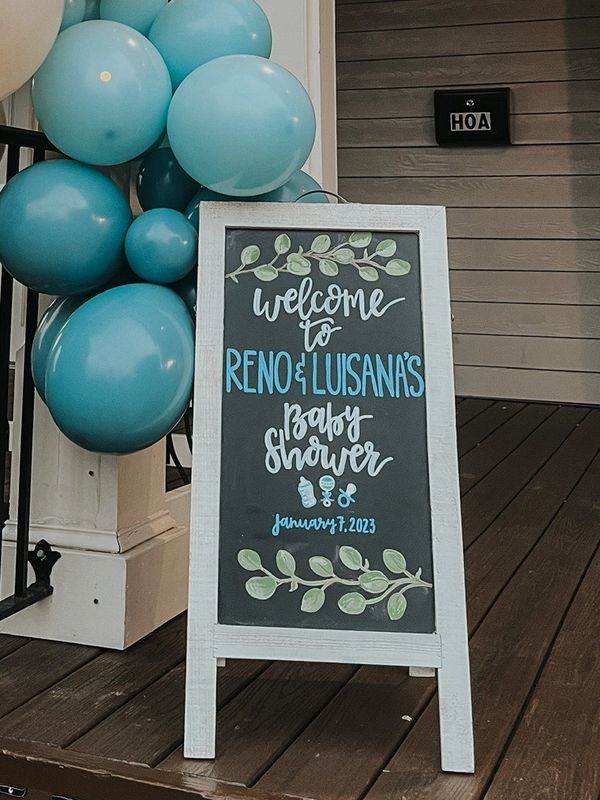 HOA
welcome
to
RENO & LUISANA'S
Baby
Shower
January 7, 2023